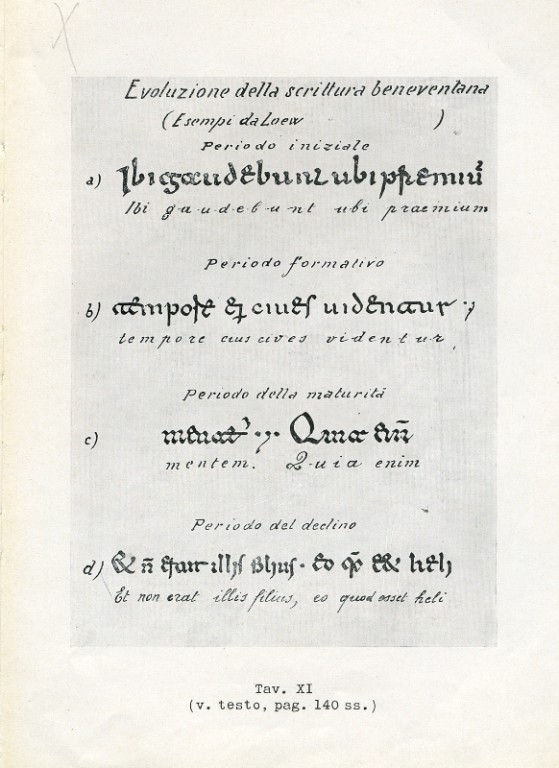 Evoluzione della scrittura beneventana
(Esempi da Loew )
Periodo iniziale
a)
Ibi g-a-u-d-e-b-u-nt ubi praemium
Periodo formativo
b)
tempore eius cives videntur
Periodo della maturità
c)
mentem. Quia enim
Periodo del declino
d)
Et non erat illis filius, eo quod esset heli
Tav. XI
(v. testo, pag. 140 ss.)